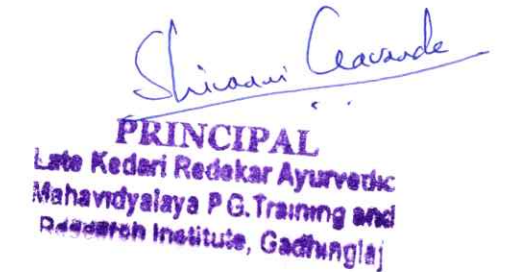 Shivani
PRINCIPAL
Late Kedari Redekar Ayurvedic
Mahavidyalaya P G.Training and
Research Institute, Gadhinglaj